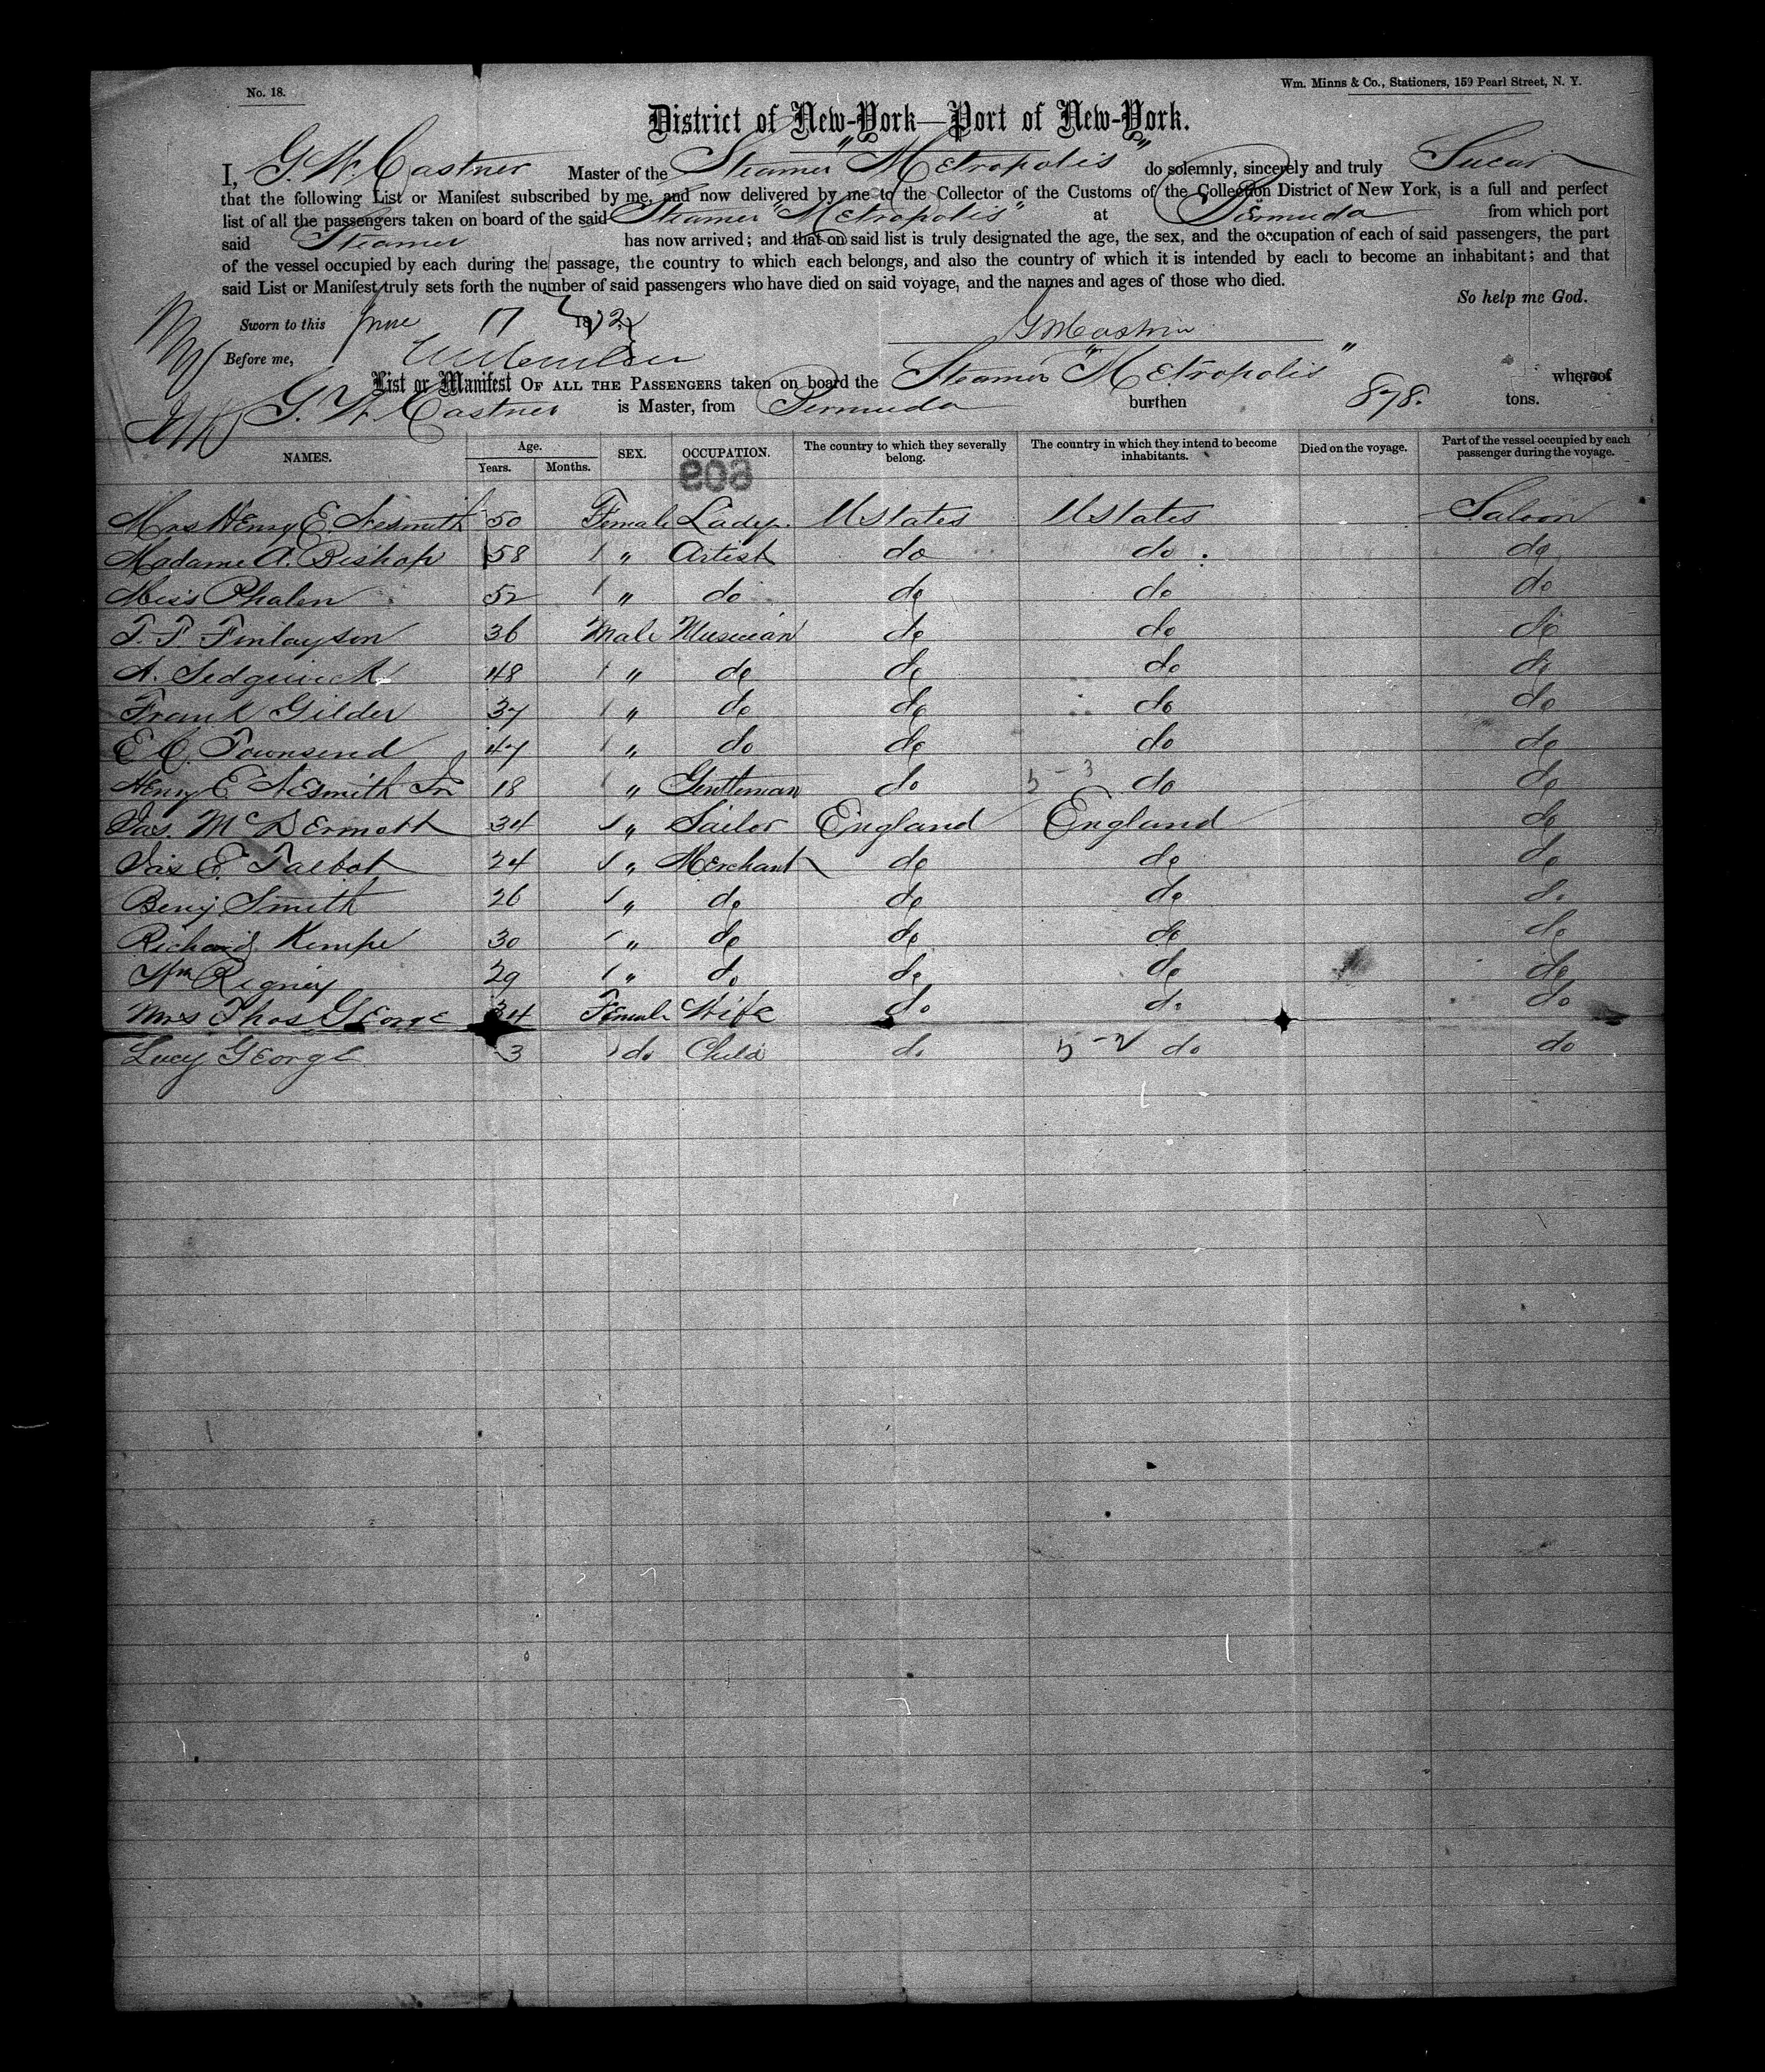 No. 18.
Wm. Minns & Co., Stationers, 159 Pearl Street, N. Y.
District of New-York—Port of New-York.
I, G. W. Castner Master of the Steamer "Metropolis" do solemnly, sincerely and truly Swear
that the following List or Manifest subscribed by me, and now delivered by me to the Collector of the Customs of the Collection District of New York, is a full and perfect
list of all the passengers taken on board of the said Steamer "Metropolis" at Bermuda from which port
said Steamer has now arrived; and that on said list is truly designated the age, the sex, and the occupation of each of said passengers, the part
of the vessel occupied by each during the passage, the country to which each belongs, and also the country of which it is intended by each to become an inhabitant; and that
said List or Manifest truly sets forth the number of said passengers who have died on said voyage, and the names and ages of those who died.
So help me God.
Sworn to this June 17 1872
G W Castner
Before me,
List or Manifest OF ALL THE PASSENGERS taken on board the Steamer "Metropolis" whereof
G. W. Castner is Master, from Bermuda burthen 878. tons.
NAMES. Age. Years. Months. SEX. OCCUPATION. The country to which they severally belong. The country in which they intend to become inhabitants. Died on the voyage. Part of the vessel occupied by each passenger during the voyage.
808
Mrs Henry E. Nesmith 50 Female Lady. U States U States Saloon
Madame A. Bishop 58 " Artist do do do
Miss Phalen 52 " do do do do
T. F. Finlayson 36 Male Musician do do do
A. Sedgwick 48 " do do do do
Frank Gilder 37 " do do do do
E C. Townsend 47 " do do do do
Henry E Nesmith Jr 18 " Gentleman do 5-3 do do
Jas. McDermott 34 " Sailor England England do
Jas E. Talbot 24 " Merchant do do do
Benj. Smith 26 " do do do do
Richard Kempe 30 " do do do do
Wm Rigney 29 " do do do do
Mrs Thos George 34 Female Wife do do do
Lucy George 3 do Child do 5-2 do do